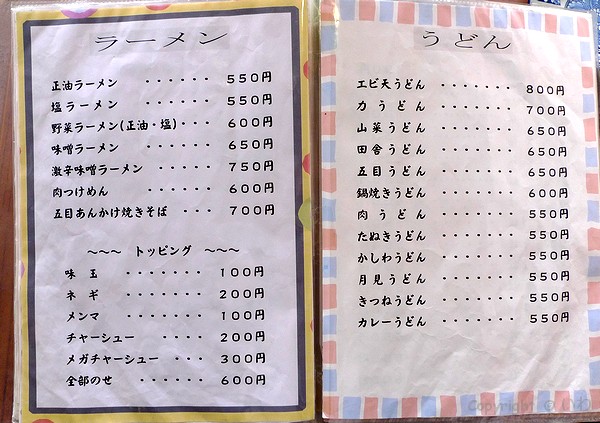 ラーメン
正油ラーメン ・・・・・・ 550円
塩ラーメン ・・・・・・ 550円
野菜ラーメン(正油・塩)・・・ 600円
味噌ラーメン ・・・・・・ 650円
激辛味噌ラーメン ・・・・・ 750円
肉つけめん ・・・・・・ 600円
五目あんかけ焼きそば ・・・ 700円
～～～ トッピング ～～～
味玉 ・・・・・・・ 100円
ネギ ・・・・・・・ 200円
メンマ ・・・・・・・ 100円
チャーシュー ・・・・ 200円
メガチャーシュー ・・・ 300円
全部のせ ・・・・・・ 600円
うどん
エビ天うどん ・・・・・・・ 800円
力うどん ・・・・・・・ 700円
山菜うどん ・・・・・・・ 650円
田舎うどん ・・・・・・・ 650円
五目うどん ・・・・・・・ 650円
鍋焼きうどん ・・・・・・・ 600円
肉うどん ・・・・・・・ 550円
たぬきうどん ・・・・・・・ 550円
かしわうどん ・・・・・・・ 550円
月見うどん ・・・・・・・ 550円
きつねうどん ・・・・・・・ 550円
カレーうどん ・・・・・・・ 550円
Copyright ©